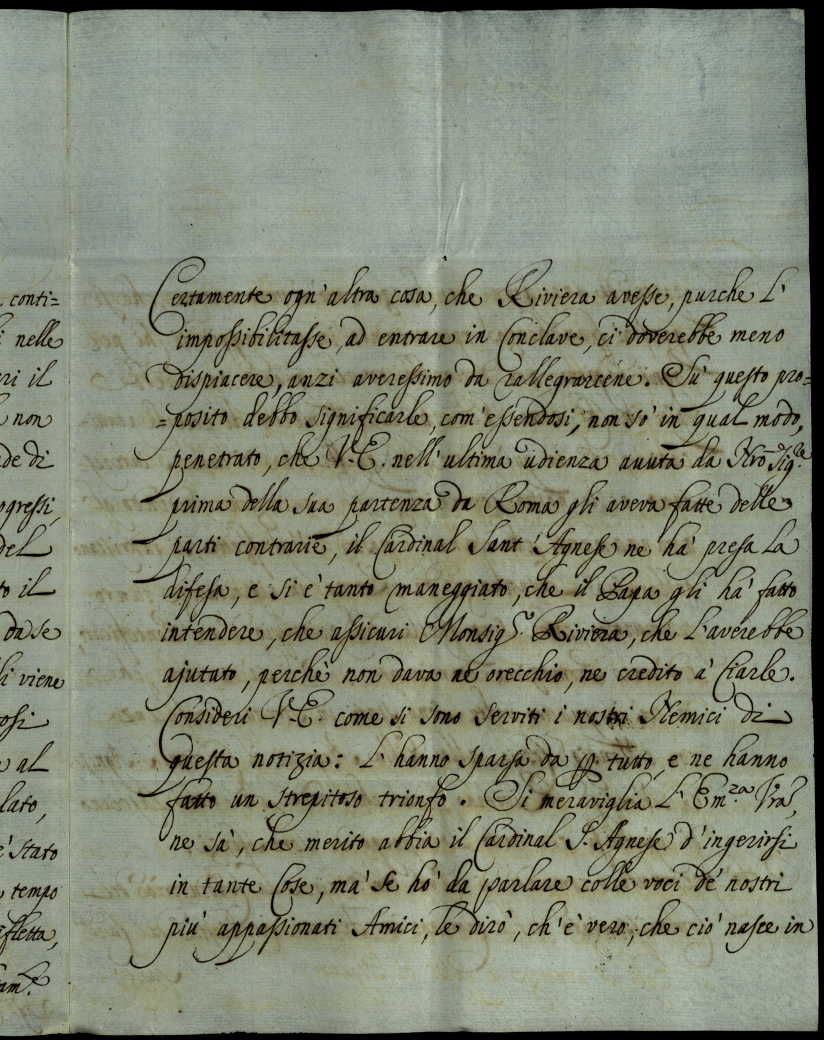 conti=
nelle
ri il
non
de di
ogressi,
del
to il
da se
li viene
osi
al
lato,
è stato
tempo
fletta,
am.te
Certamente ogn'altra cosa, che Riviera avesse, purche l'
impossibilitasse ad entrare in Conclave, ci doverebbe meno
dispiacere, anzi averessimo da rallegrarcene. Sù questo pro=
=posito debbo significarle, com'essendosi, non sò in qual modo,
penetrato, che V. E. nell'ultima udienza avuta da Nrō Sig.re
prima della sua partenza da Roma gli aveva fatte delle
parti contrarie, il Cardinal Sant'Agnese ne hà presa la
difesa, e si è tanto maneggiato, che il Papa gli hà fatto
intendere, che assicuri Monsig.r Riviera, che l'averebbe
ajutato, perchè non dava ne orecchio, ne credito à Ciarle.
Consideri V. E. come si sono serviti i nostri Nemici di
questa notizia: l'hanno sparsa da ꝑ tutto, e ne hanno
fatto un strepitoso trionfo. Si meraviglia l'Em.za Vrā,
ne sà, che merito abbia il Cardinal S. Agnese d'ingerirsi
in tante Cose, mà se hò da parlare colle voci de' nostri
più appassionati Amici, le dirò, ch'è vero, che ciò nasce in